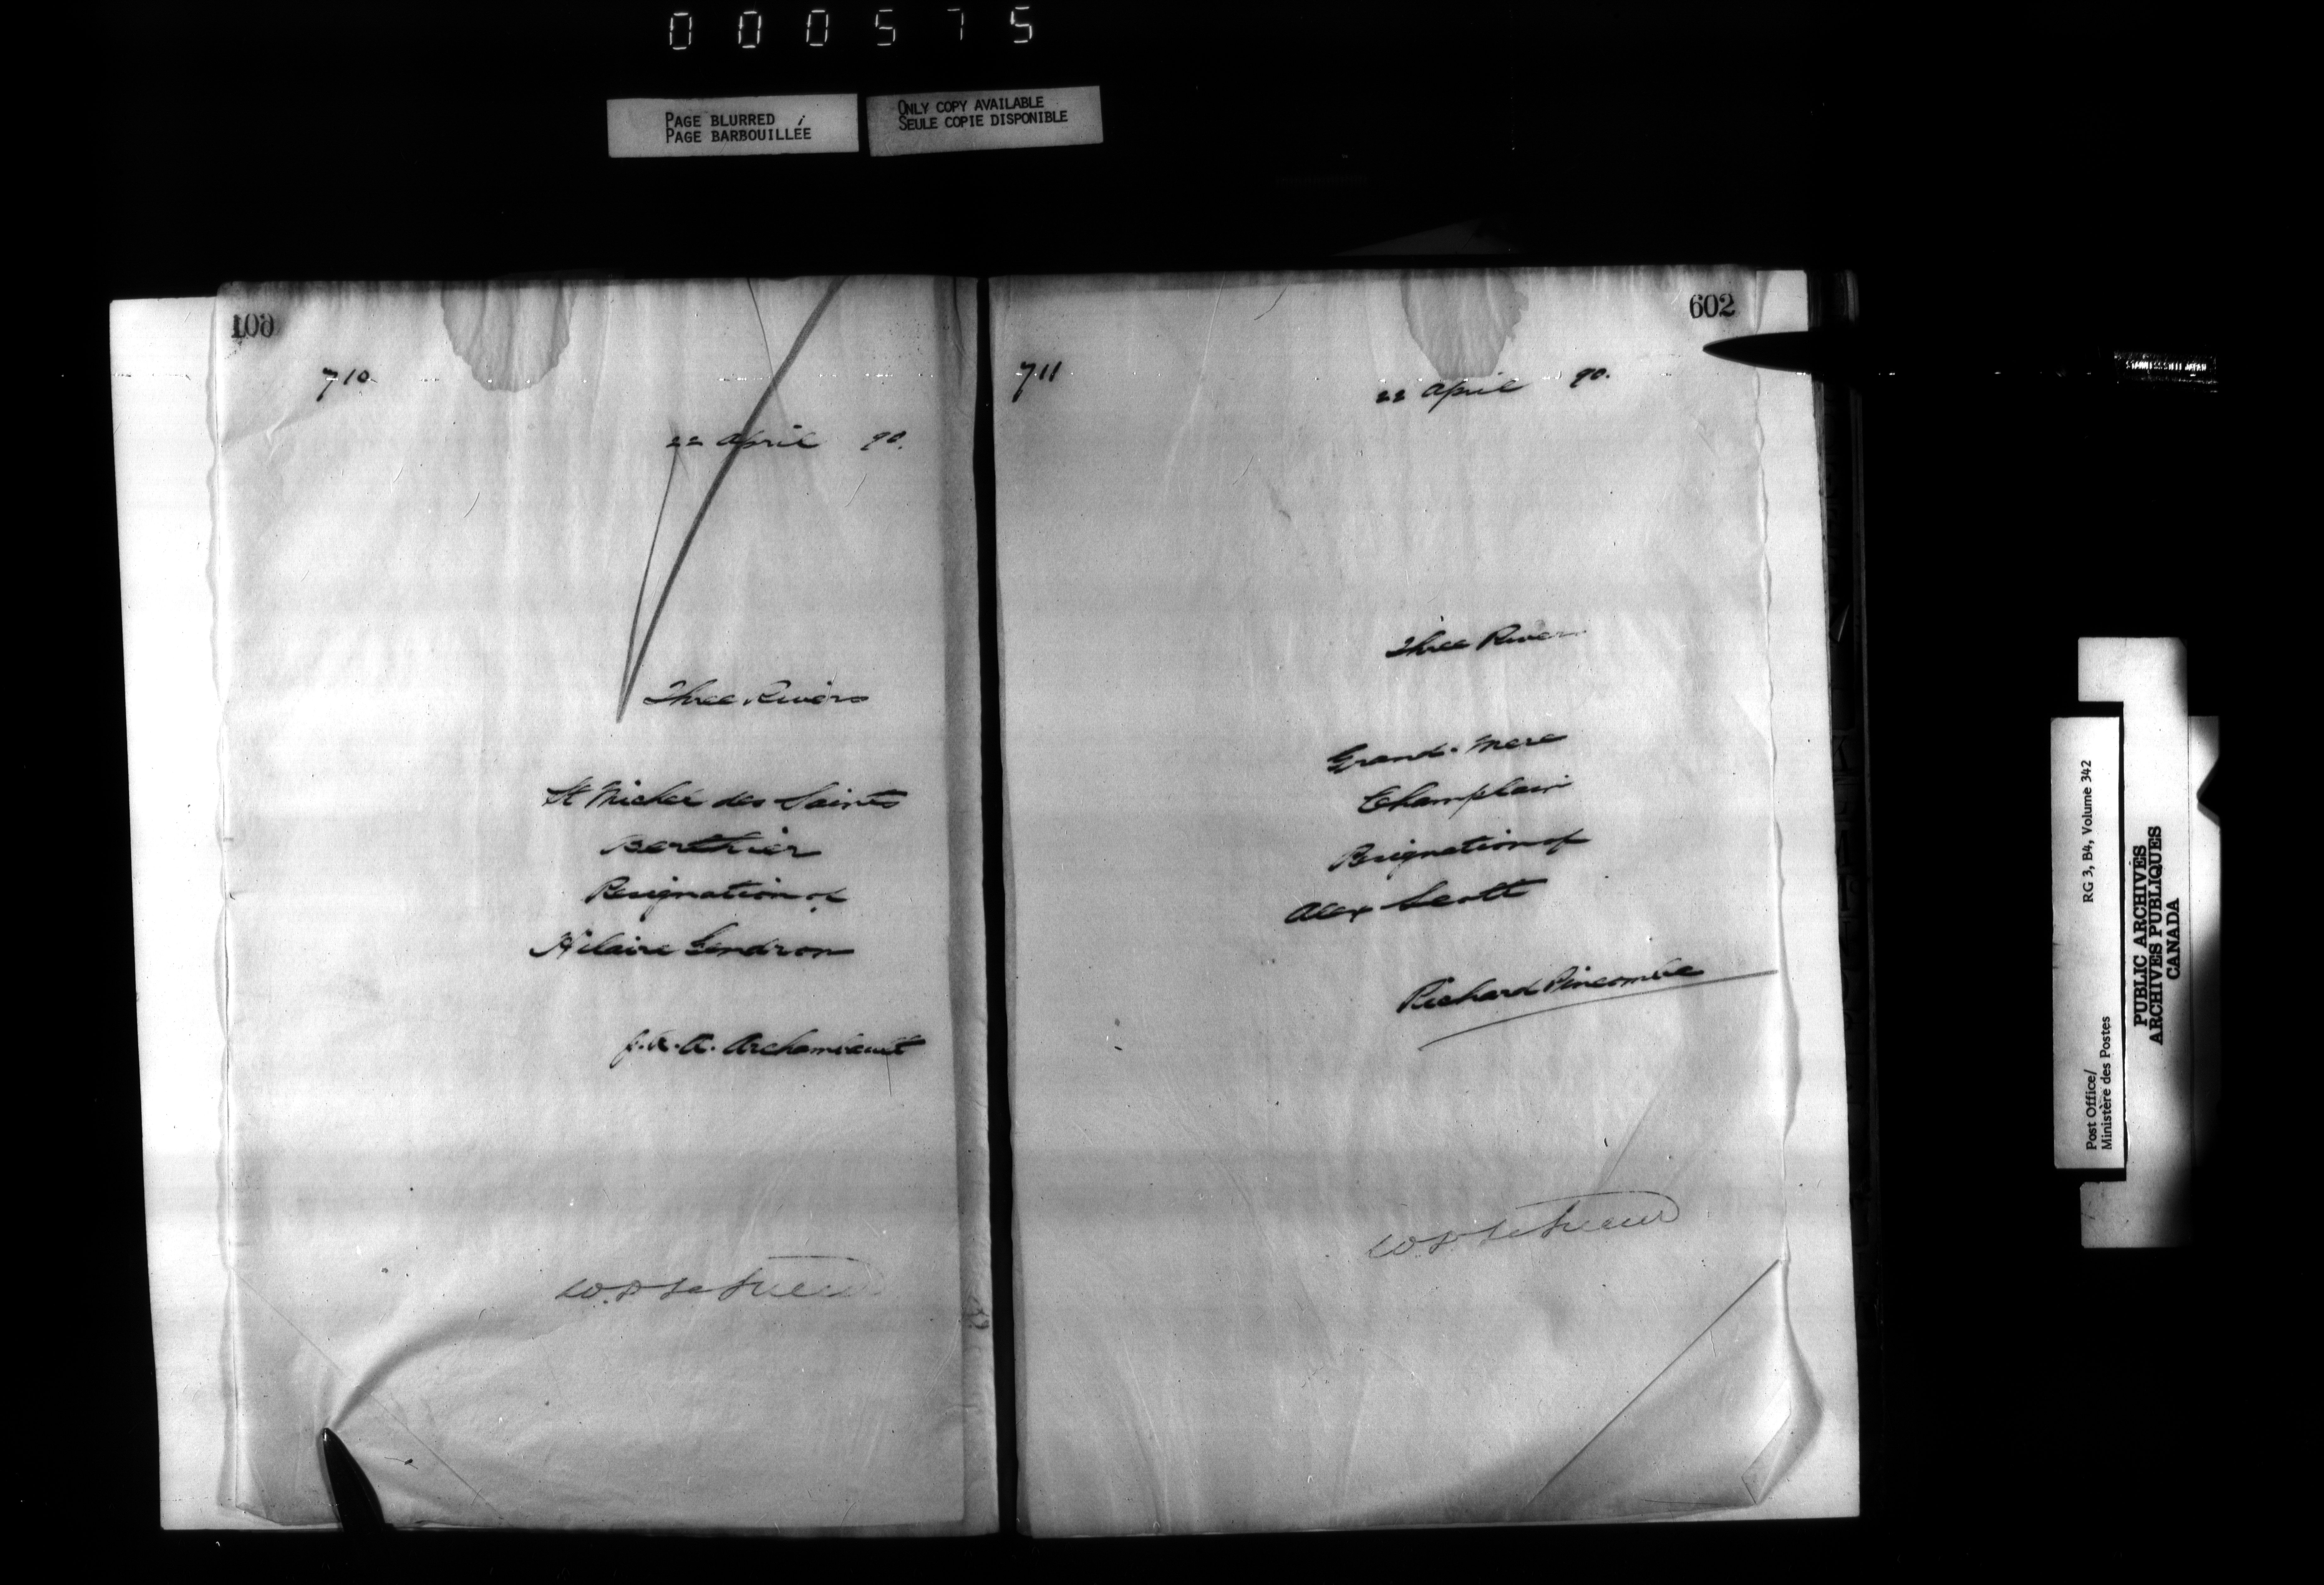 000575
PAGE BLURRED ;
PAGE BARBOUILLÉE
ONLY COPY AVAILABLE
SEULE COPIE DISPONIBLE
601
710
22 April 90.
Three Rivers
St Michel des Saints
Berthier
Resignation of
Hilaire Gendron
J. A. A. Archambault
602
711
22 April 90.
Three River
Grand-Mere
Champlain
Resignation of
Alex Scott
Richard Pincombe
Post Office/ RG 3, B4, Volume 342
Ministère des Postes
PUBLIC ARCHIVES
ARCHIVES PUBLIQUES
CANADA